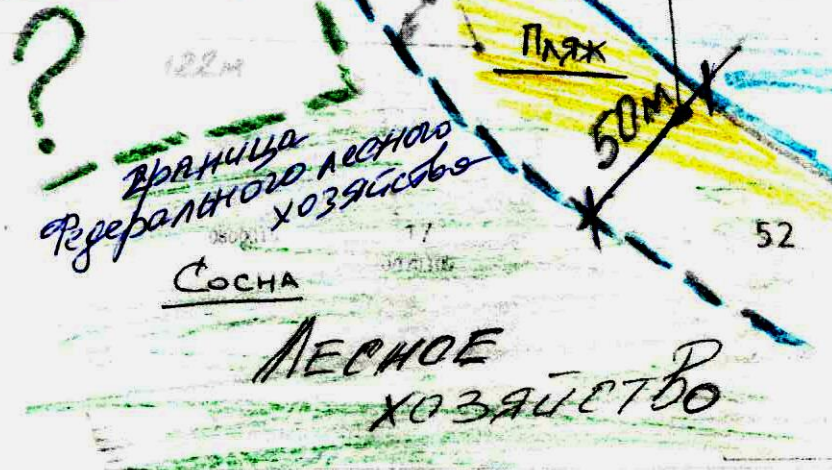 ?
122м
Пляж
50м
граница
Федерального лесного
хозяйства
52
17
Сосна
Лесное
хозяйство